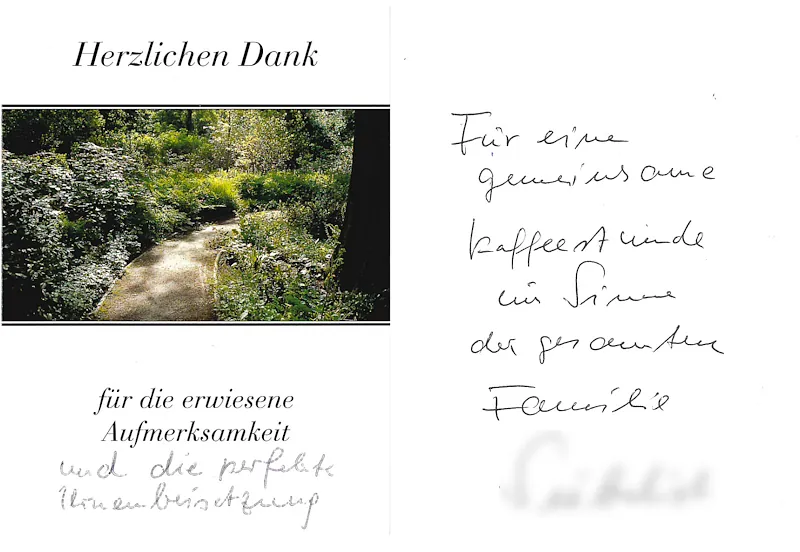 Herzlichen Dank
für die erwiesene
Aufmerksamkeit
und die perfekte
Urnenbeisetzung
Für eine
gemeinsame
Kaffeestunde
im Sinne
der gesamten
Familie